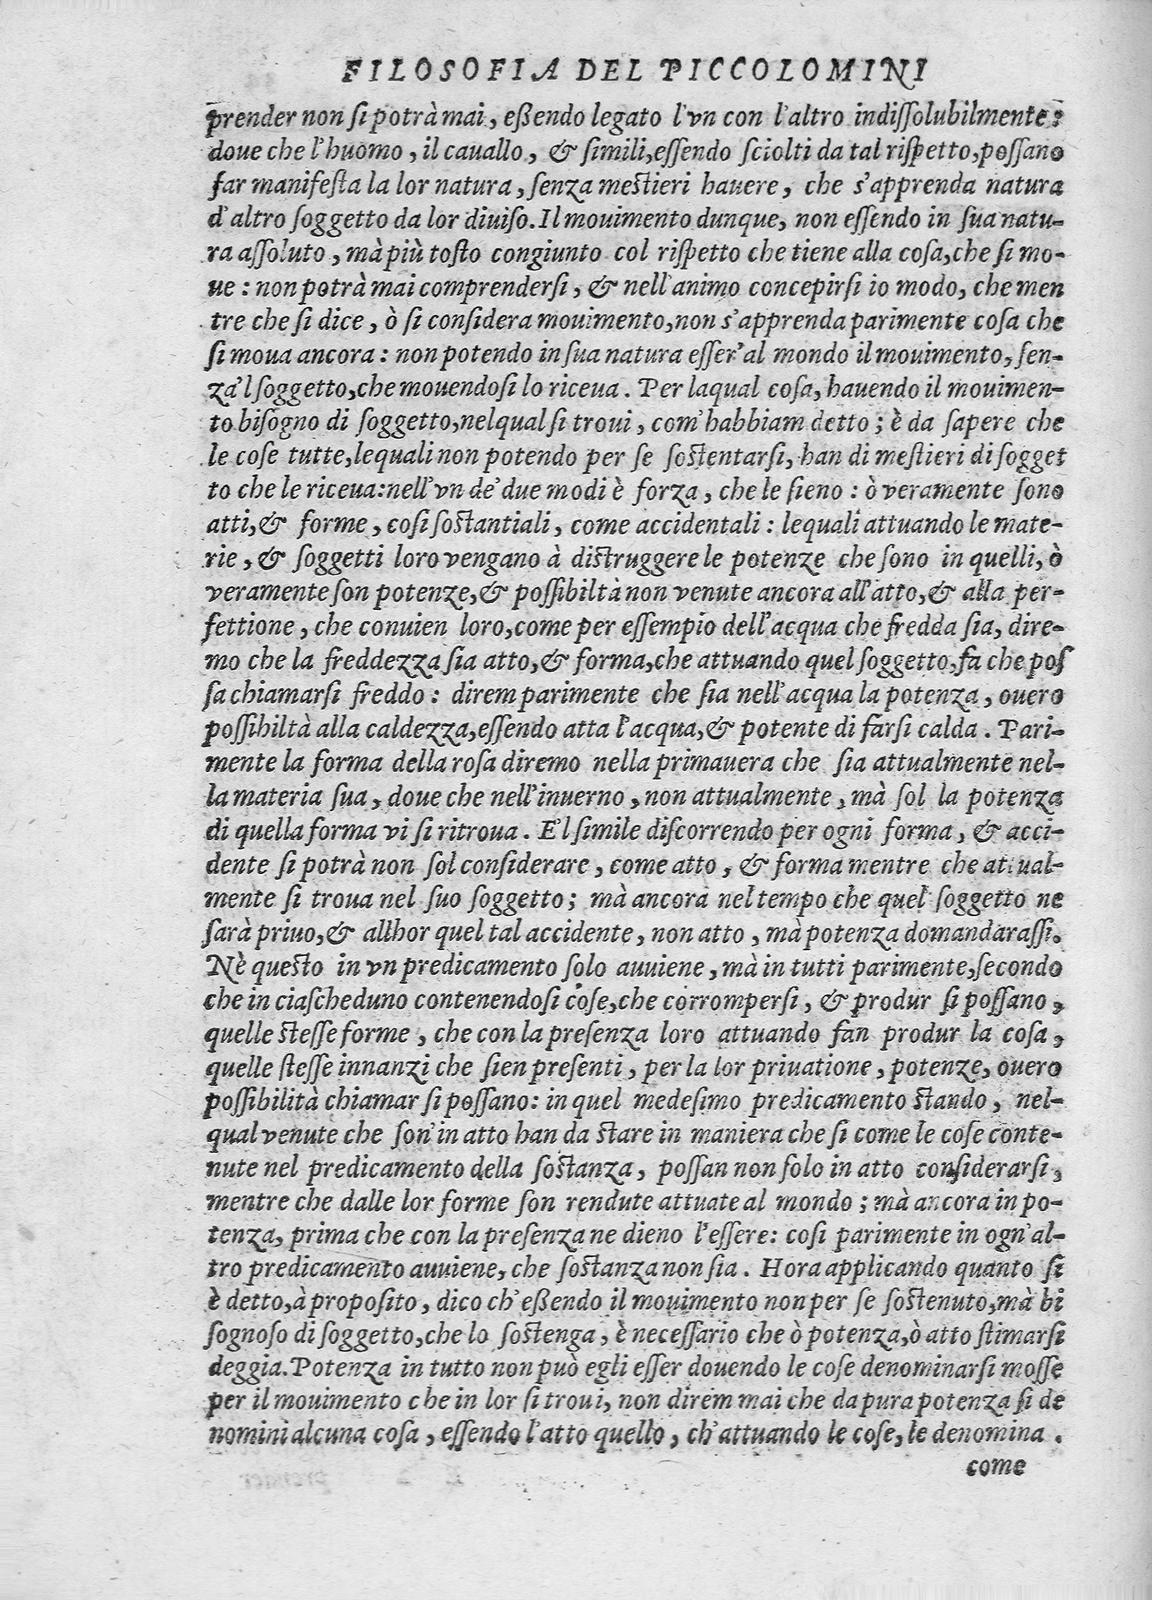 FILOSOFIA DEL PICCOLOMINI
prender non ſi potrà mai, eßendo legato l'vn con l'altro indiſſolubilmente:
doue che l'huomo, il cauallo, & ſimili, eſſendo ſciolti da tal riſpetto, poſſano
far manifeſta la lor natura, ſenza meſtieri hauere, che s'apprenda natura
d'altro ſoggetto da lor diuiſo. Il mouimento dunque, non eſſendo in ſua natu-
ra aſſoluto, mà più toſto congiunto col riſpetto che tiene alla coſa, che ſi mo-
ue: non potrà mai comprenderſi, & nell'animo concepirſi io modo, che men
tre che ſi dice, ò ſi conſidera mouimento, non s'apprenda parimente coſa che
ſi moua ancora: non potendo in ſua natura eſſer' al mondo il mouimento, ſen-
za'l ſoggetto, che mouendoſi lo riceua. Per laqual coſa, hauendo il mouimen-
to biſogno di ſoggetto, nelqual ſi troui, com'habbiam detto; è da ſapere che
le coſe tutte, lequali non potendo per ſe ſoſtentarſi, han di meſtieri di ſogget
to che le riceua: nell'vn de' due modi è forza, che le ſieno: ò veramente ſono
atti, & forme, coſi ſoſtantiali, come accidentali: lequali attuando le mate-
rie, & ſoggetti loro vengano à diſtruggere le potenze che ſono in quelli, ò
veramente ſon potenze, & poſſibiltà non venute ancora all'atto, & alla per-
fettione, che conuien loro, come per eſſempio dell'acqua che fredda ſia, dire-
mo che la freddezza ſia atto, & forma, che attuando quel ſoggetto, fa che poſ
ſa chiamarſi freddo: direm parimente che ſia nell'acqua la potenza, ouero
poſſibiltà alla caldezza, eſſendo atta l'acqua, & potente di farſi calda. Pari-
mente la forma della roſa diremo nella primauera che ſia attualmente nel-
la materia ſua, doue che nell'inuerno, non attualmente, mà ſol la potenza
di quella forma vi ſi ritroua. E'l ſimile diſcorrendo per ogni forma, & acci-
dente ſi potrà non ſol conſiderare, come atto, & forma mentre che attual-
mente ſi troua nel ſuo ſoggetto; mà ancora nel tempo che quel ſoggetto ne
ſarà priuo, & allhor quel tal accidente, non atto, mà potenza domandaraſſi.
Nè queſto in vn predicamento ſolo auuiene, mà in tutti parimente, ſecondo
che in ciaſcheduno contenendoſi coſe, che corromperſi, & produr ſi poſſano,
quelle ſteſſe forme, che con la preſenza loro attuando fan produr la coſa,
quelle ſteſſe innanzi che ſien preſenti, per la lor priuatione, potenze, ouero
poſſibilità chiamar ſi poſſano: in quel medeſimo predicamento ſtando, nel-
qual venute che ſon' in atto han da ſtare in maniera che ſi come le coſe conte-
nute nel predicamento della ſoſtanza, poſſan non ſolo in atto conſiderarſi,
mentre che dalle lor forme ſon rendute attuate al mondo; mà ancora in po-
tenza, prima che con la preſenza ne dieno l'eſſere: coſi parimente in ogn'al-
tro predicamento auuiene, che ſoſtanza non ſia. Hora applicando quanto ſi
è detto, à propoſito, dico ch'eßendo il mouimento non per ſe ſoſtenuto, mà bi
ſognoſo di ſoggetto, che lo ſoſtenga, è neceſſario che ò potenza, ò atto ſtimarſi
deggia. Potenza in tutto non può egli eſſer douendo le coſe denominarſi moſſe
per il mouimento che in lor ſi troui, non direm mai che da pura potenza ſi de
nomini alcuna coſa, eſſendo l'atto quello, ch'attuando le coſe, le denomina.
come